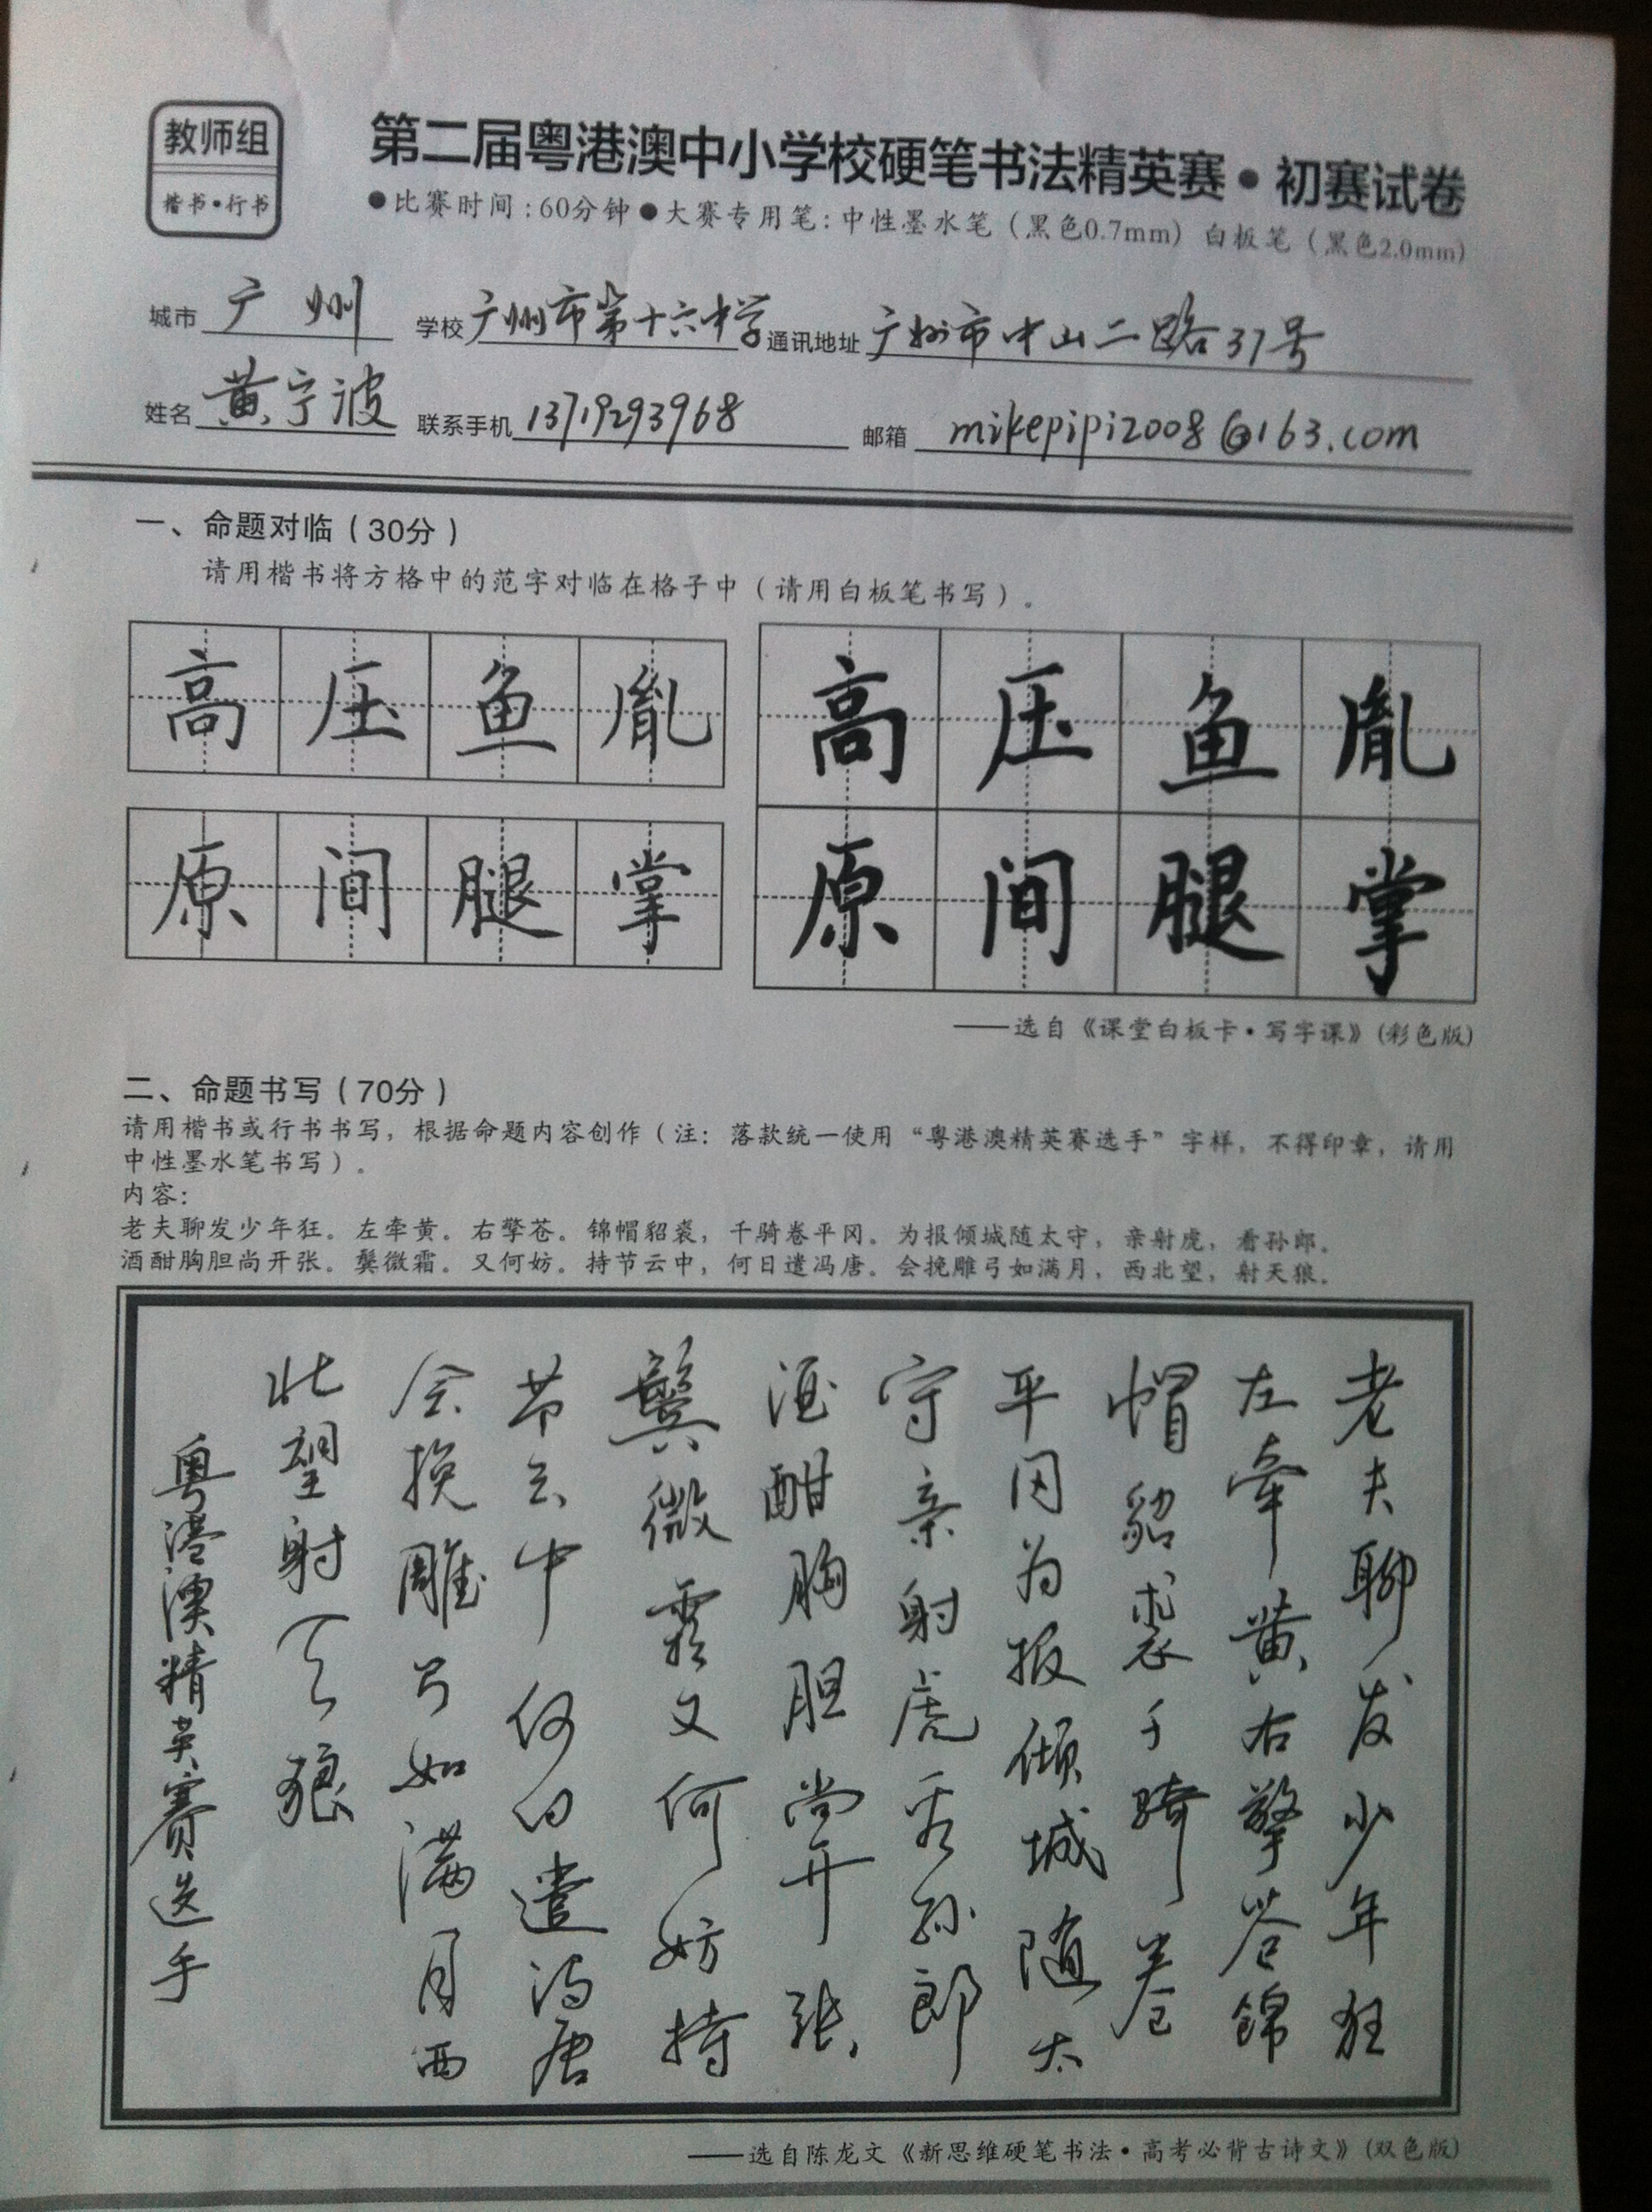 教师组
楷书•行书
第二届粤港澳中小学校硬笔书法精英赛•初赛试卷
●比赛时间:60分钟●大赛专用笔:中性墨水笔(黑色0.7mm) 白板笔(黑色2.0mm)
城市 广州 学校 广州市第十六中学 通讯地址 广州市中山二路37号
姓名 黄宁波 联系手机 13719293968 邮箱 mikepipi2008@163.com
一、命题对临(30分)
请用楷书将方格中的范字对临在格子中(请用白板笔书写)。
高压鱼胤
原间腿掌
高压鱼胤
原间腿掌
——选自《课堂白板卡•写字课》(彩色版)
二、命题书写(70分)
请用楷书或行书书写,根据命题内容创作(注:落款统一使用“粤港澳精英赛选手”字样,不得印章,请用
中性墨水笔书写)。
内容:
老夫聊发少年狂。左牵黄。右擎苍。锦帽貂裘,千骑卷平冈。为报倾城随太守,亲射虎,看孙郎。
酒酣胸胆尚开张。鬓微霜。又何妨。持节云中,何日遣冯唐。会挽雕弓如满月,西北望,射天狼。
老夫聊发少年狂
左牵黄右擎苍锦
帽貂裘千骑卷
平冈为报倾城随太
守亲射虎看孙郎
酒酣胸胆尚开张
鬓微霜又何妨持
节云中何日遣冯唐
会挽雕弓如满月西
北望射天狼
粤港澳精英赛选手
——选自陈龙文《新思维硬笔书法•高考必背古诗文》(双色版)